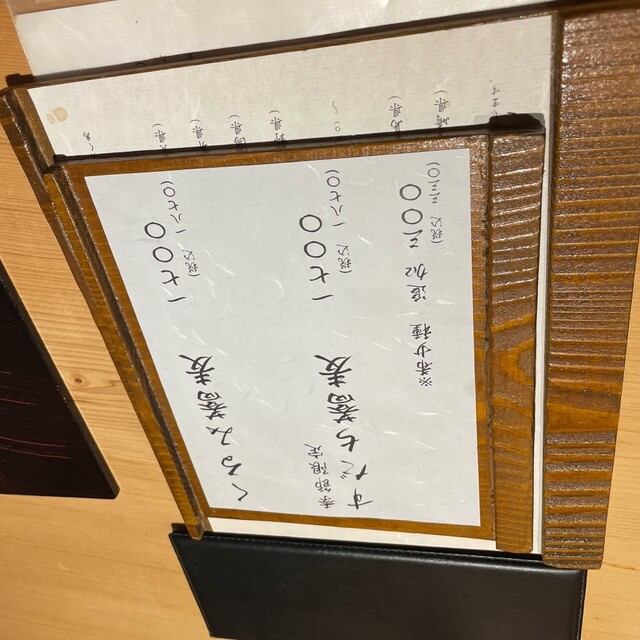 くるみ蕎麦 一七〇〇
(税込 一八七〇)
季節限定
すだち蕎麦 一七〇〇
(税込 一八七〇)
※希少種 追加 三〇〇
(税込 三三〇)